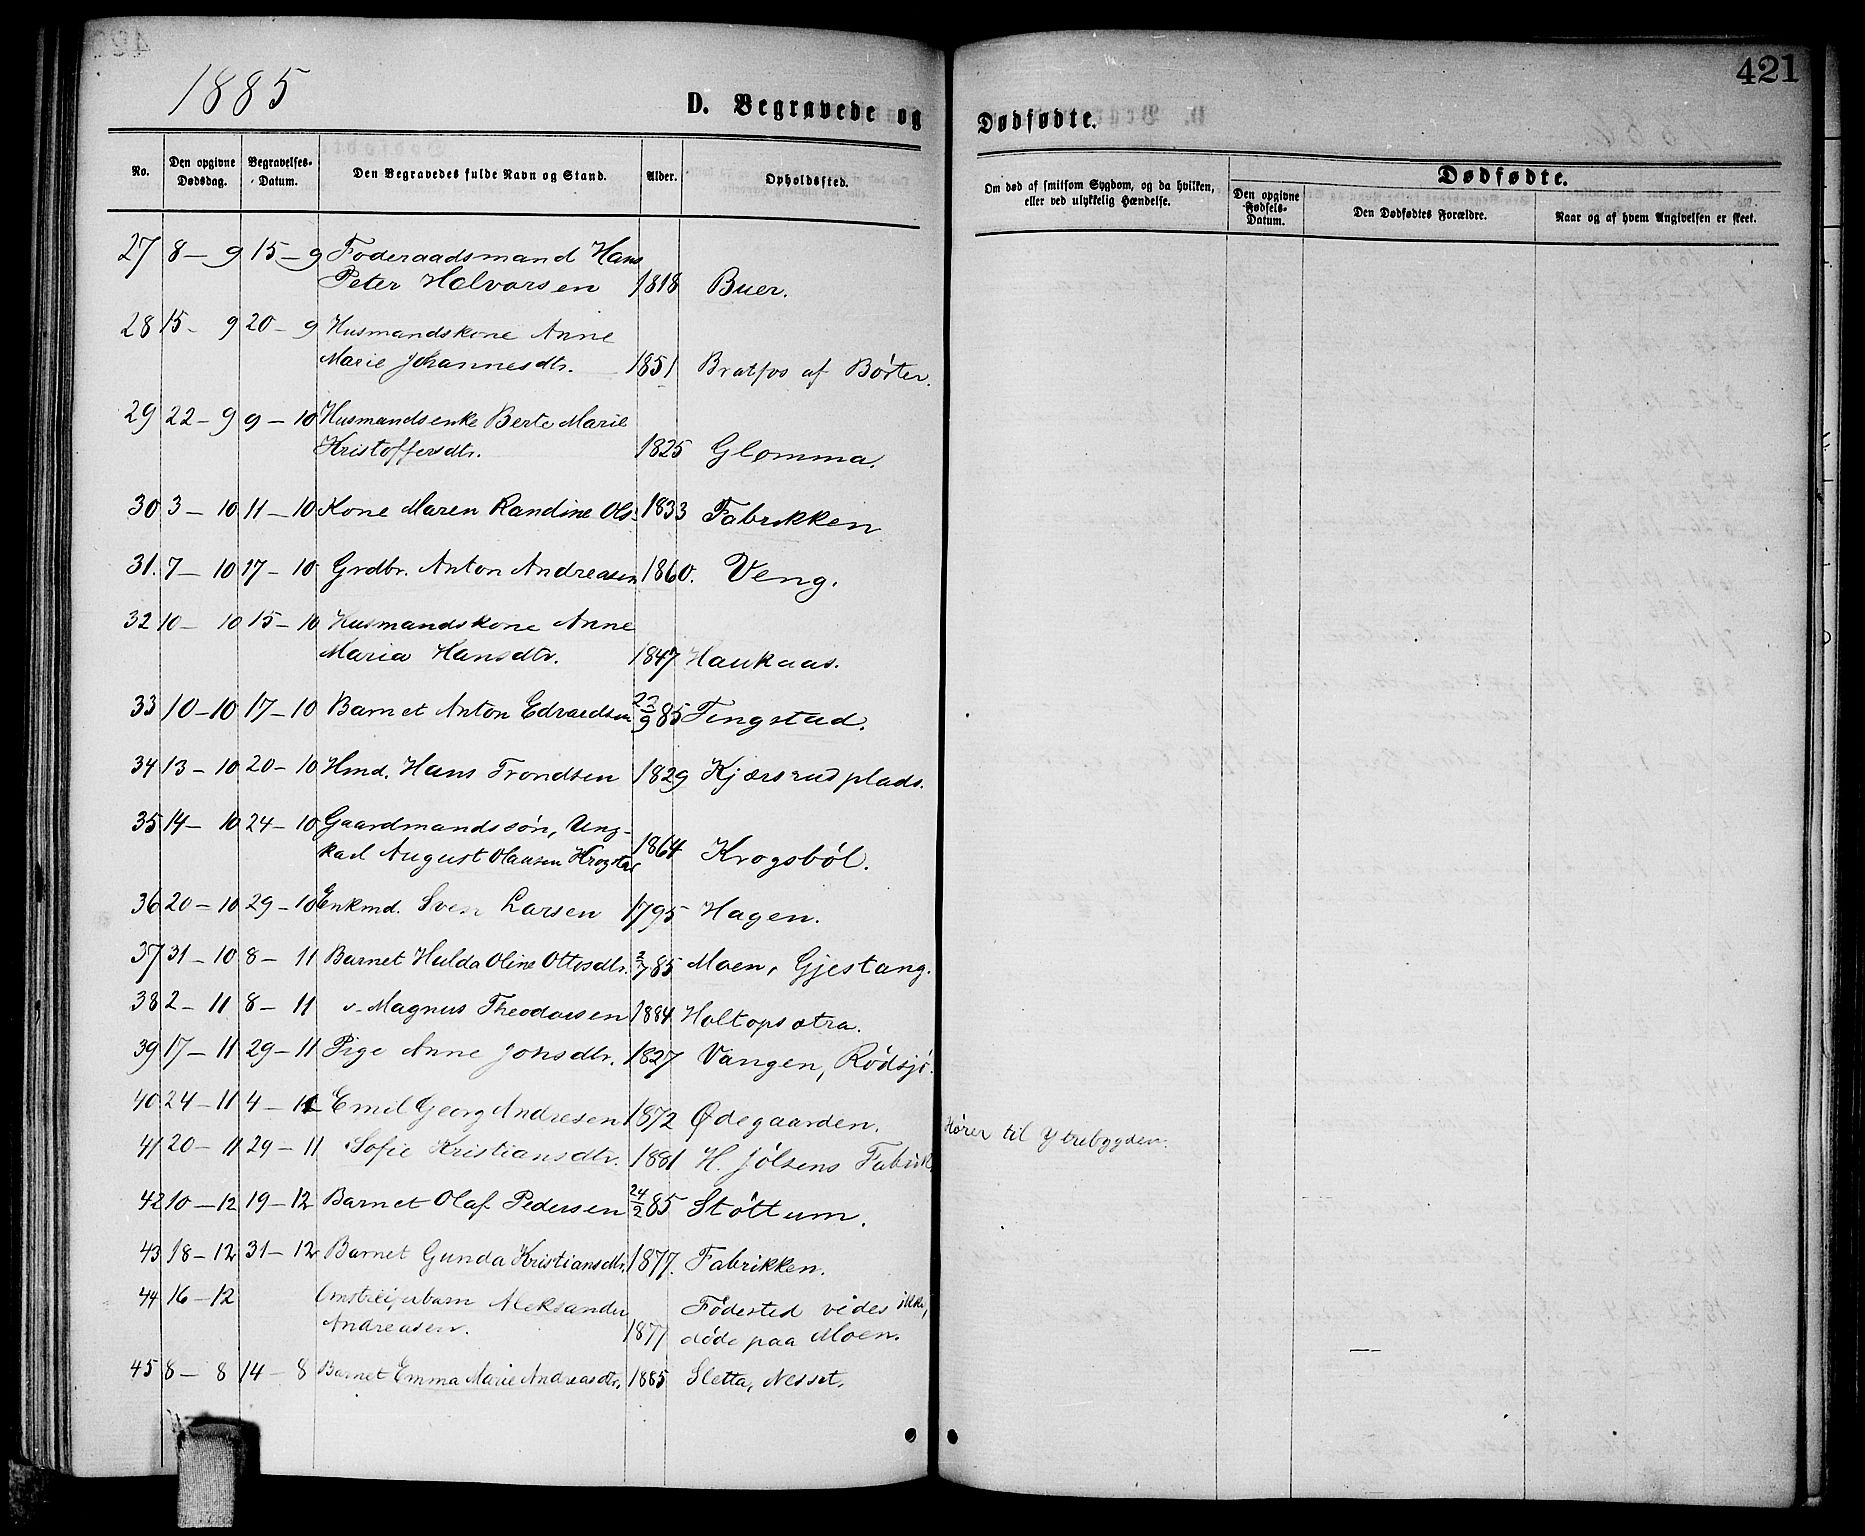 421
1885
D. Begravede og
Dødfødte.
No.
Den opgivne
Dødsdag.
Begravelses-
Datum.
Den Begravedes fulde Navn og Stand.
Alder.
Opholdssted.
Om død af smitsom Sygdom, og da hvilken,
eller ved ulykkelig Hændelse.
Dødfødte.
Den opgivne
Fødsels-
Datum.
Den Dødfødtes Forældre.
Naar og af hvem Angivelsen er skeet.
27 8 – 9 15 – 9 Føderaadsmand Hans
Peter Halvorsen 1818 Buer.
28 15 – 9 20 – 9 Husmandskone Anne
Marie Johannesdtr. 1851 Bratfos af Børter.
29 22 – 9 9 – 10 Husmandsenke Berte Marie
Kristoffersdtr. 1825 Glomma.
30 3 – 10 11 – 10 Kone Maren Randine Ols: 1833 Fabrikken
31. 7 – 10 17 – 10 Grdbr. Anton Andreasen 1860. Veng.
32 10 – 10 15 – 10 Husmandskone Anne
Maria Hansdtr. 1847 Haukaas.
33 10 – 10 17 – 10 Barnet Anton Edvardsen 22/9 85 Tingstad.
34 13 – 10 20 – 10 Hmd. Hans Trondsen 1829 Kjærsrudplads.
35 14 – 10 24 – 10 Gaardmandssøn, Ung-
karl August Olausen Krogstad 1864 Krogsbøl.
36 20 – 10 29 – 10 Enkmd. Sven Larsen 1795 Hagen.
37 31 – 10 8 – 11 Barnet Hulda Oline Ottosdtr. 2/7 85 Moen, Gjestang.
38 2 – 11 8 – 11 – Magnus Theodorsen 1884 Holtopsætra.
39 17 – 11 29 – 11 Pige Anne Johsdtr. 1827 Vangen, Rødsjø.
40. 24 – 11 4 – 12 Emil Georg Andresen 1872 Ødegaarden. Hører til Ytrebygden.
41 20 – 11 29 – 11 Sofie Kristiansdtr. 1881 H. Jølsens Fabrik.
42 10 – 12 19 – 12 Barnet Olaf Pedersen 24/2 85 Støttum.
43 18 – 12 31 – 12 Barnet Gunda Kristiansdtr. 1877. Fabrikken.
44 16 – 12 Omstreiferbarn Aleksander Fødested vides ikke,
Andreasen. 1877 døde paa Moen.
45 8 – 8 14 – 8 Barnet Emma Marie Andreasdtr. 1885 Sletta, Nesset.